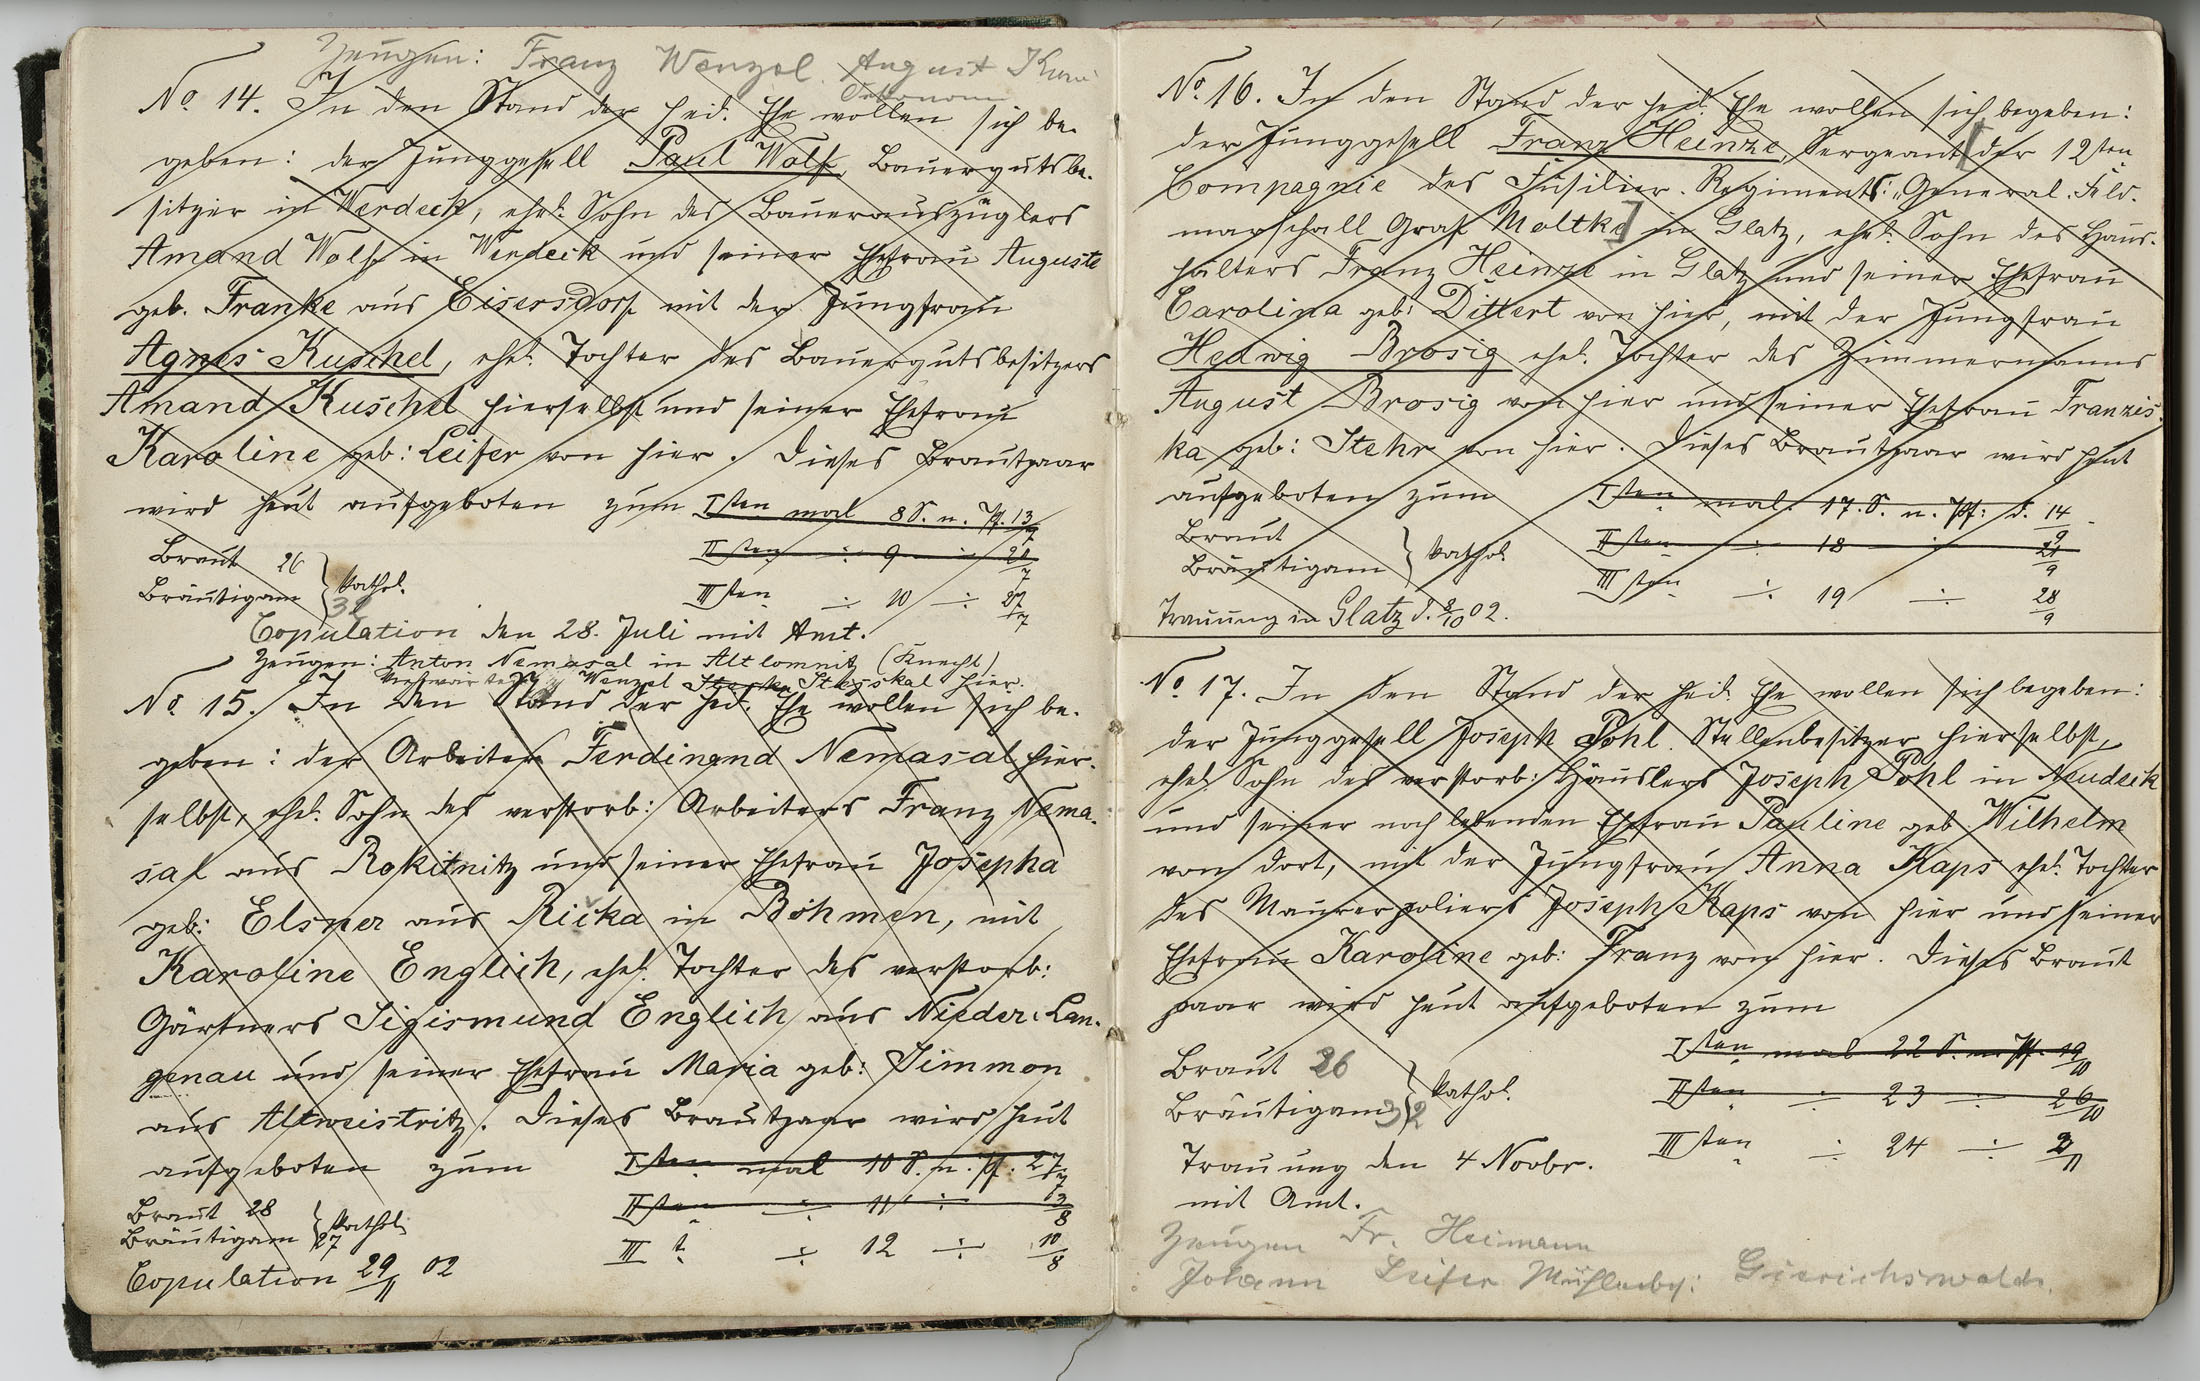 Zeugen: Franz Wenzel August
No 14. In den Stand der heil. Ehe wollen sich be-
geben: der Junggesell Paul Wolf, Bauergutsbe-
sitzer in Werdeck, ehel. Sohn des Bauerauszüglers
Amand Wolf in Werdeck und seiner Ehefrau Auguste
geb. Franke aus Eisersdorf mit der Jungfrau
Agnes Kuschel, ehel. Tochter des Bauergutsbesitzers
Amand Kuschel hierselbst und seiner Ehefrau
Karoline geb: Leifer von hier. Dieses Brautpaar
wird heut aufgeboten zum Isten mal 8 S. n. Pf. 13/7
Braut 26 IIsten ÷ 9 ÷ 20/7
Bräutigam 32 } kathol. IIIsten ÷ 10 ÷ 27/7
Copulation den 28. Juli mit Amt.
Zeugen: Anton Nemasal in Altlomnitz (Knecht)
Wenzel Stejskal hier.
No 15. In den Stand der heil. Ehe wollen sich be-
geben: der Arbeiter Ferdinand Nemasal hier-
selbst, ehel. Sohn des verstorb: Arbeiters Franz Nema-
sal aus Rokitnitz und seiner Ehefrau Josepha
geb: Elsner aus Rička in Böhmen, mit
Karoline Englich, ehel. Tochter des verstorb:
Gärtners Sigismund Englich aus Nieder-Lan-
genau und seiner Ehefrau Maria geb: Simmon
aus Altweistritz. Dieses Brautpaar wird heut
aufgeboten zum Isten mal 10 S. n. Pf. 27/7
Braut 28 IIsten ÷ 11 ÷ 3/8
Bräutigam 27 } kathol. III t. ÷ 12 ÷ 10/8
Copulation 29/11 02
No 16. In den Stand der heil. Ehe wollen sich begeben:
der Junggesell Franz Heinze, Sergeant [der 12ten
Compagnie des Füsilier-Regiments: „General-Feld-
marschall Graf Moltke] in Glatz, ehel. Sohn des Haus-
hälters Franz Heinze in Glatz und seiner Ehefrau
Carolina geb: Dittert von hier, mit der Jungfrau
Hedwig Brosig ehel. Tochter des Zimmermanns
August Brosig von hier und seiner Ehefrau Franzis-
ka geb: Stehr von hier. Dieses Brautpaar wird heut
aufgeboten zum Isten mal. 17. S. n. Pf: d. 14/9
Braut IIsten ÷ 18 ÷ 21/9
Bräutigam } kathol. IIIsten ÷ 19 ÷ 28/9
Trauung in Glatz d. 8/10 02.
No 17. In den Stand der heil. Ehe wollen sich begeben:
der Junggesell Joseph Pohl. Stellenbesitzer hierselbst,
ehel. Sohn des verstorb: Häuslers Joseph Pohl in Neudeck
und seiner noch lebenden Ehefrau Pauline geb. Wilhelm
von dort, mit der Jungfrau Anna Kaps ehel. Tochter
des Maurerpoliers Joseph Kaps von hier und seiner
Ehefrau Karoline geb: Franz von hier. Dieses Braut
paar wird heut aufgeboten zum
Isten mal 22 S. n. Pf. 19/10
Braut 26 IIsten ÷ 23 ÷ 26/10
Bräutigam 32 } kathol. IIIsten ÷ 24 ÷ 2/11
Trauung den 4 Novbr.
mit Amt.
Zeugen Fr. Heimann
Johann Leifer Mühlenbes: Gierichswalde.